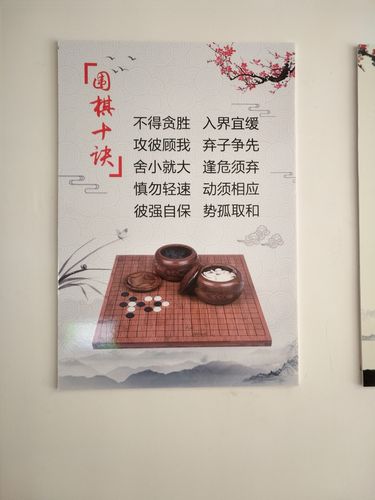 围棋十诀
不得贪胜 入界宜缓
攻彼顾我 弃子争先
舍小就大 逢危须弃
慎勿轻速 动须相应
彼强自保 势孤取和